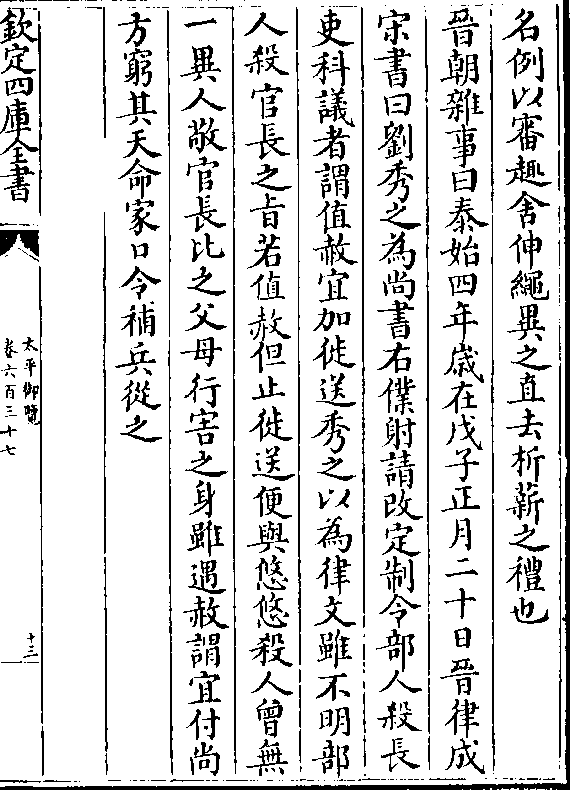 名例以審趣舍伸繩異之直去析薪之禮也
晉朝雜事曰泰始四年歲在戊子正月二十日晉律成
宋書曰劉秀之為尚書右僕射請改定制令部人殺長
吏科議者謂值赦宜加徙送秀之以為律文雖不明部
人殺官長之旨若值赦但止徙送便與悠悠殺人曾無
一異人敬官長比之父母行害之身雖遇赦謂宜付尚
方窮其天命家口令補兵從之
欽定四庫全書
太平御覽
卷六百三十七
十三